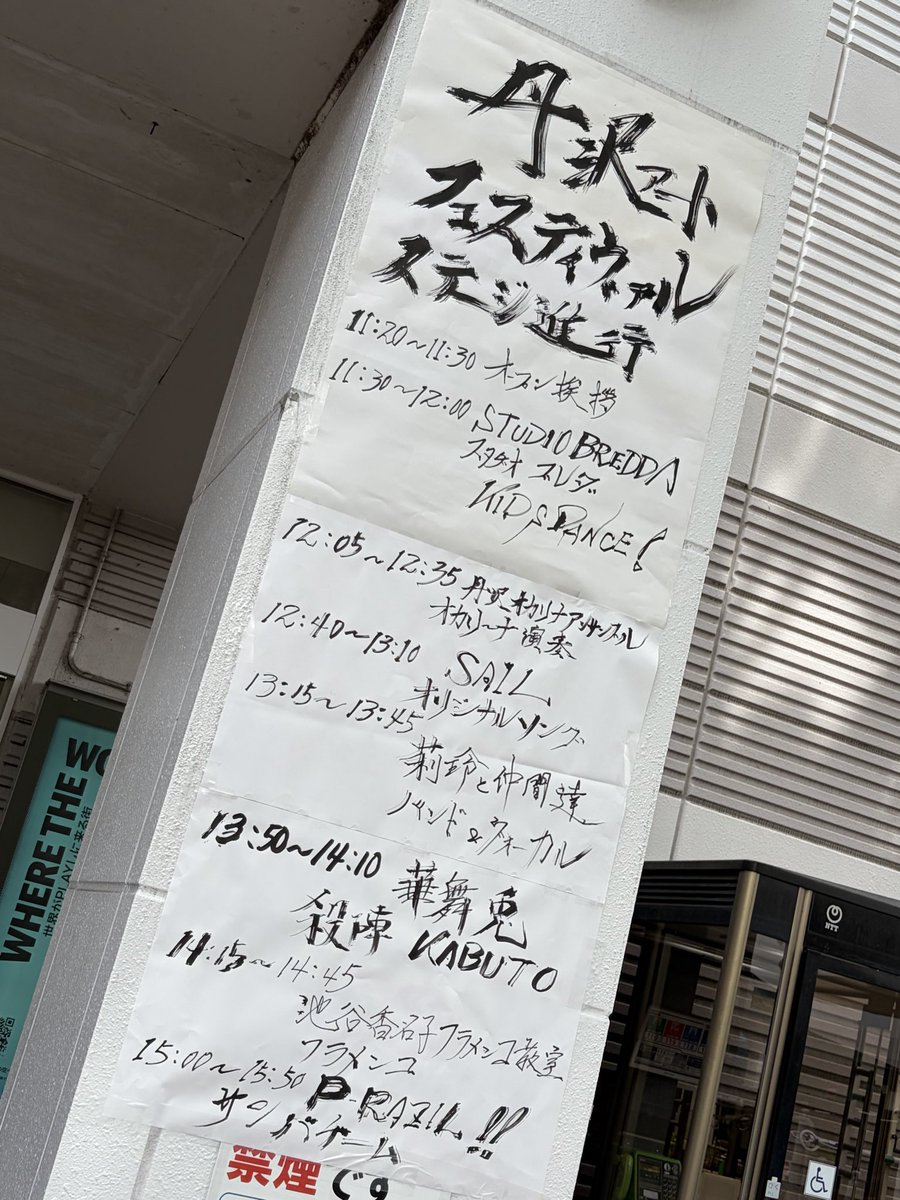 丹沢アート
フェスティヴァル
ステージ進行
11:20〜11:30 オープン挨拶
11:30〜12:00 STUDIO BREDDA
スタヂオ ブレダ
KIDS DANCE!
12:05〜12:35 丹沢オカリナアンサンブル
オカリーナ演奏
12:40〜13:10 SAIL
オリジナルソング
13:15〜13:45
莉鈴と仲間達
バンド&ヴォーカル
13:50〜14:10 華舞兎
殺陣 KABUTO
14:15〜14:45
池谷香沼子フラメンコ教室
フラメンコ
15:00〜15:50 P-RAZIL!!
サンバチーム
禁煙です
WHERE THE WO
世界がPLAY!しに来る街
NTT